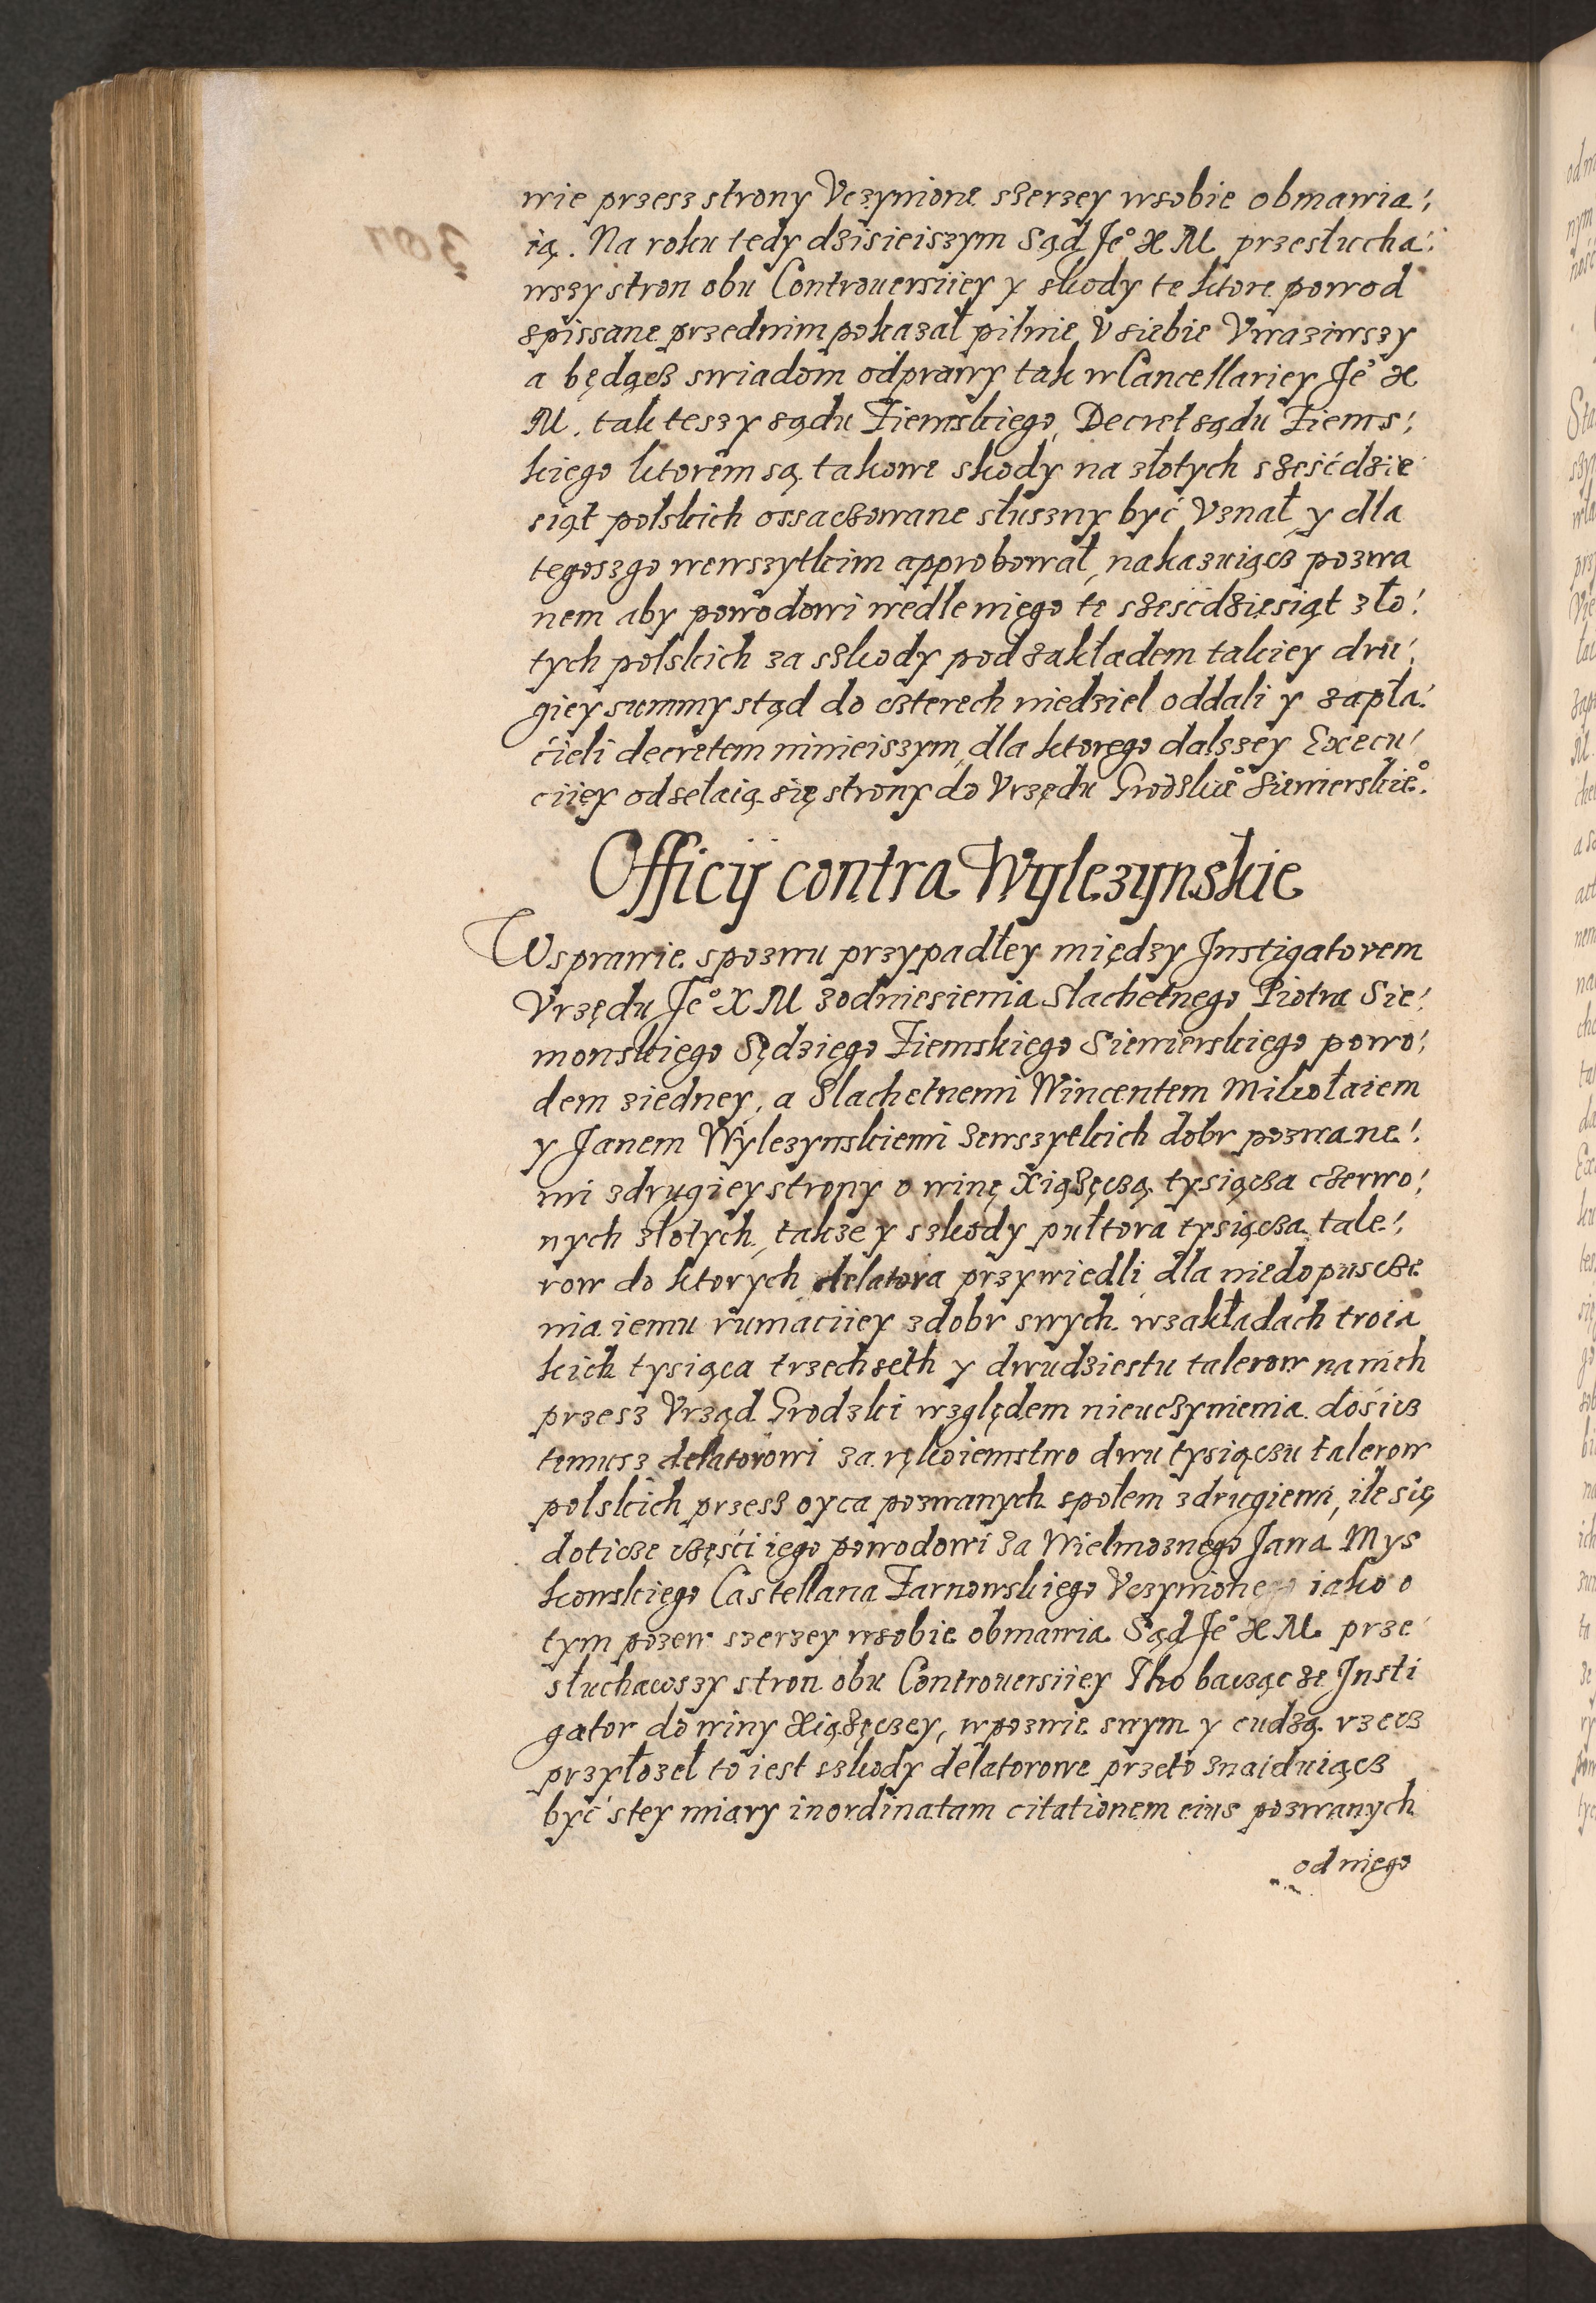 wie przesz strony Vczynione szerzey wsobie obmawia:
ią. Na roku tedy dzisieiszym Sąd Je° X M przesłucha:
wszy stron obu Controuersiiey y skody te ktore powod
spissane przednim pokazał pilnie v siebie Vwaziwszy
a będącz swiadom odprawy tak w Cancellariey Je° X
M. tak teszy sądu Ziemskiego, Decret sądu Ziems:
kiego ktorem są takowe skody na złotych szesćdzie
siąt polskich ossaczowane słuszny być Vznał y dla
tegoszgo wewszytkim approbował, nakazuiącz pozwa
nem aby powodowi wedle niego te szesćdziesiąt zło:
tych polskich za szkody pod zakładem takiey dru:
giey summy stąd do czterech niedziel oddali y zapła:
ćieli decretem ninieiszym, dla ktorego dalszey Execu:
ciiey odsełaią się strony do Vrzędu Grodzkie° Siewierskie°.
Officij contra Wylezynskie
Wsprawie spozwu przypadłey między Instigatorem
Vrzędu Je° X M zodniesienia Slachetnego Piotra Sie:
monskiego Sędziego Ziemskiego Siewierskiego powo:
dem ziedney, a Slachetnemi Wincentem Mikołaiem
y Janem Wylezynskiemi zewszytkich dobr pozwane:
mi zdrugiey strony o winę Xiążęczą tysiącza czerwo:
nych złotych, takze y szkody pułtora tysiącza tale:
row do ktorych delatora przywiedli dla niedopuscze
nia iemu rumaciiey zdobr swych wzakładach troia
kich tysiąca trzechseth y dwudziestu talerow na nich
przesz Vrząd Grodzki względem nieuczynienia dosicz
temusz delatorowi za rękoiemstwo dwu tysiączu talerow
polskich przesz oyca pozwanych społem zdrugiemi, ile się
doticze częśći iego powodowi za Wielmoznego Jana Mys
kowskiego Castellana Zarnowskiego Vczynionego iako o
tym pozew szerzey wsobie obmawia Sąd Je° X M prze
słuchawszy stron obu Controuersiiey Tho bacząc ze Insti
gator do winy Xiążęczey, wpozwie swym y cudzą rzecz
przyłozeł to iest szkody delatorowe przeto znaiduiącz
być stey miary inordinatam citationem eius pozwanych
od niego